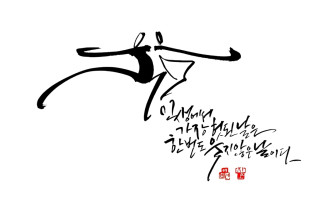 인생에서
가장 헛된 날은
한번도 웃지않은 날이다